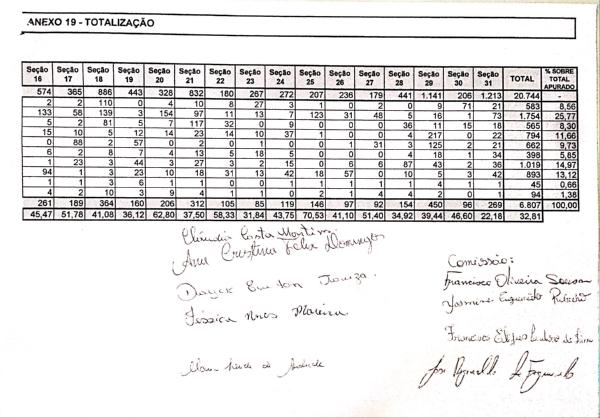 ANEXO 19 - TOTALIZAÇÃO
Seção 16 Seção 17 Seção 18 Seção 19 Seção 20 Seção 21 Seção 22 Seção 23 Seção 24 Seção 25 Seção 26 Seção 27 Seção 28 Seção 29 Seção 30 Seção 31 TOTAL % SOBRE TOTAL APURADO
574 365 886 443 328 832 180 267 272 207 236 179 441 1.141 206 1.213 20.744 -
2 2 110 0 4 10 8 27 3 1 0 2 0 9 71 21 583 8,56
133 58 139 3 154 97 11 13 7 123 31 48 5 16 1 73 1.754 25,77
5 2 81 5 7 117 32 0 9 0 0 0 36 11 15 18 565 8,30
15 10 5 12 14 23 14 10 37 1 0 0 4 217 0 22 794 11,66
0 88 2 57 0 2 0 1 0 0 1 31 3 125 2 21 662 9,73
6 2 8 7 4 13 5 18 5 0 0 0 4 18 1 34 398 5,85
1 23 3 44 3 27 3 2 15 0 6 6 87 43 2 36 1.019 14,97
94 1 3 23 10 18 31 13 42 18 57 0 10 5 3 42 893 13,12
1 1 3 6 1 0 0 0 0 1 0 1 4 4 1 1 45 0,66
4 2 10 3 9 4 1 1 0 2 1 4 4 2 0 1 94 1,38
261 189 364 160 206 312 105 85 119 146 97 92 154 450 96 269 6.807 100,00
45,47 51,78 41,08 36,12 62,80 37,50 58,33 31,84 43,75 70,53 41,10 51,40 34,92 39,44 46,60 22,18 32,81
Cláudia Costa Montini
Ana Cristina Felix Domingos
Comissão:
Francisco Oliveira
Jéssica Moreira
Francisco
José Reginaldo